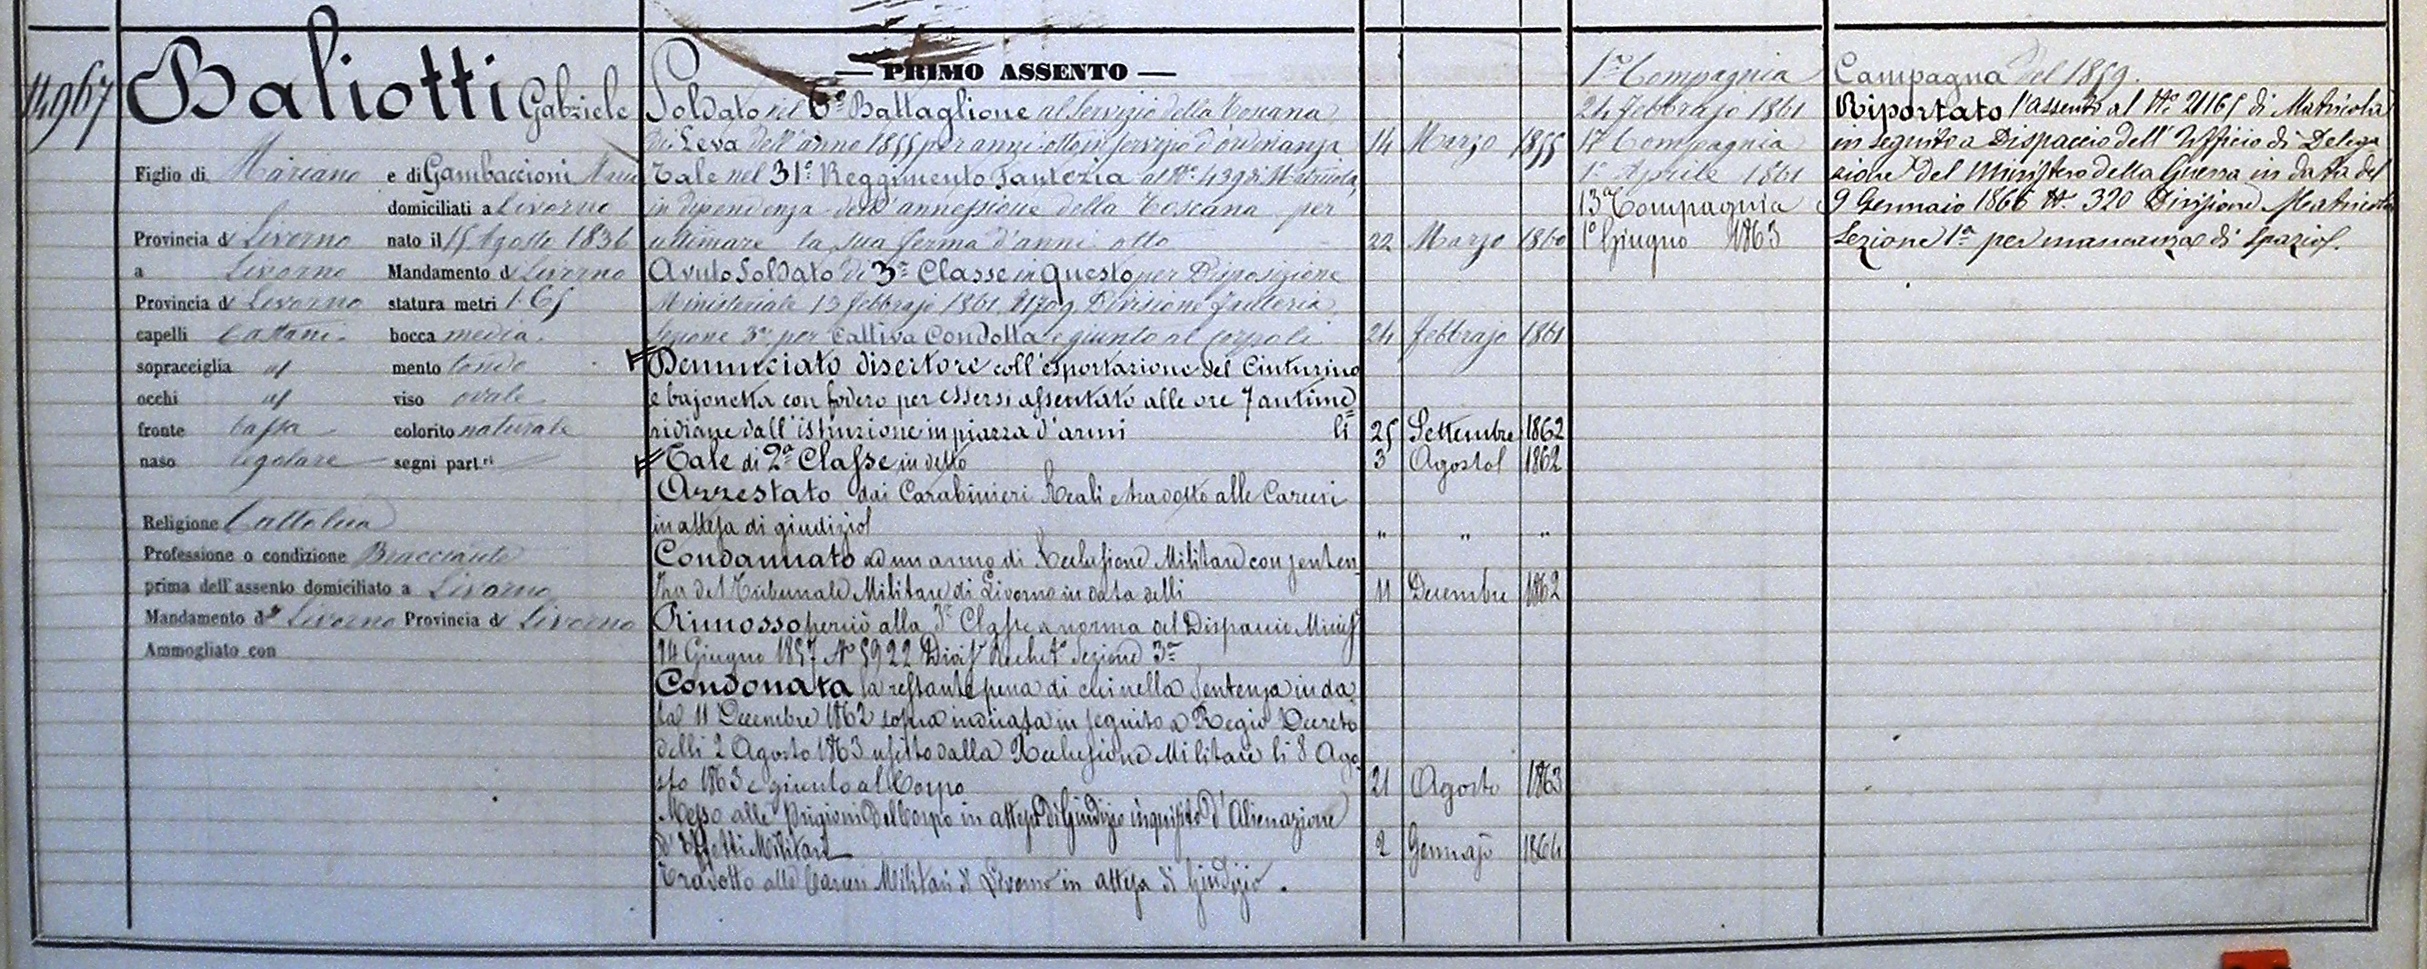 14967
Baliotti Gabriele
Figlio di Mariano e di Gambaccioni Maria
domiciliati a Livorno
Provincia di Livorno nato il 15 Agosto 1836
a Livorno Mandamento di Livorno
Provincia di Livorno statura metri 1.65
capelli Castani bocca media
sopracciglia as mento tondo
occhi as viso ovale
fronte bassa colorito naturale
naso regolare segni part.ri
Religione Cattolica
Professione o condizione Bracciante
prima dell'assento domiciliato a Livorno
Mandamento di Livorno Provincia di Livorno
Ammogliato con
— PRIMO ASSENTO —
Soldato nel 6º Battaglione al Servizio della Toscana
di Leva dell'anno 1855 per anni otto in servizio d'ordinanza 14 Marzo 1855
Tale nel 31º Reggimento Fanteria al Nº 439 di Matricola
in dipendenza dell'annessione della Toscana per
ultimare la sua ferma d'anni otto 22 Marzo 1860
Avuto Soldato di 3ª Classe in questo per Disposizione
Ministeriale 13 febbrajo 1861 Nº 1709 Divisione Fanteria
Sezione 3ª per Cattiva Condotta e giunto al Corpo li 24 febbrajo 1861
Denunciato disertore coll'esportazione del Cinturino
e bajonetta con fodero per essersi assentato alle ore 7 antime=
ridiane dall'istruzione in piazza d'armi li 25 Settembre 1862
Tale di 2ª Classe in detto 3 Agosto 1862
Arrestato dai Carabinieri Reali e tradotto alle Carceri
in attesa di giudizio " " "
Condannato ad un anno di Reclusione Militare con senten
za del Tribunale Militare di Livorno in data delli 11 Decembre 1862
Rimosso perciò alla 3ª Classe a norma del Dispaccio Minist
24 Giugno 1857 Nº 5922 Divis. Reclutº Sezione 3ª
Condonata la restante pena di cui nella Sentenza in da
ta 11 Decembre 1862 sopra indicata in seguito a Regio Decreto
delli 2 Agosto 1863 uscito dalla Reclusione Militare li 8 Ago
sto 1863 e giunto al Corpo 21 Agosto 1863
Messo alle Prigioni del Corpo in attesa di Giudizio inquisito d'Alienazione
d'Effetti Militari 2 Gennajo 1864
Tradotto alle Carceri Militari di Livorno in attesa di Giudizio.
1ª Compagnia
24 febbrajo 1861
17 Compagnia
1º Aprile 1861
13ª Compagnia
1º Giugno 1863
Campagna del 1859.
Riportato l'assento al Nº 21165 di Matricola
in seguito a Dispaccio dell'Ufficio di Delega
zione del Ministero della Guerra in data del
9 Gennaio 1866 N. 320 Divisione Matricola
Sezione 1ª per mancanza di spazio.